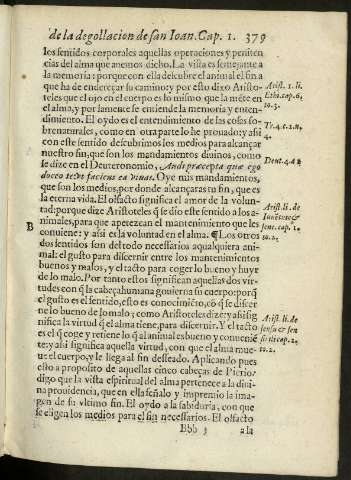 de la degollacion de san Ioan. Cap. 1. 379
los sentidos corporales aquellas operaciones y peniten
cias del alma que auemos dicho. La vista es semejante a
la memoria: porque con ella descubre el animal el fin a
que ha de endereçar su camino: y por esto dixo Aristo-
teles que el ojo en el cuerpo es lo mismo que la mête en
el alma, y por lamente se entiende la memoria y enten-
dimiento. El oydo es el entendimiento de las cosas so-
brenaturales, como en otra parte lo he prouado: y assi
con este sentido descubrimos los medios para alcançar
nuestro fin, que son los mandamientos diuinos, como
se dize en el Deuteronomio, Audi præcepta que ego
doceo te vt faciens ea viuas. Oye mis mandamientos,
que son los medios, por donde alcançaras tu fin, que es
la eterna vida. El olfacto significa el amor de la volun-
tad: porque dize Aristoteles q̃ se dio este sentido a los a-
nimales, para que apetezcan el mantenimiento que les
conuiene: y assi es la voluntad en el alma. ¶ Los otros
dos sentidos son del todo necessarios a qualquiera ani-
mal: el gusto para discernir entre los mantenimientos
buenos y malos, y el tacto para coger lo bueno y huyr
de lo malo. Por tanto estos significan aquellas dos vir-
tudes con q̃ la cabeça humana gouierna su cuerpo: porq̃
el gusto es el sentido, esto es conocimiẽto, cõ q̃ se discer
ne lo bueno de lo malo; como Aristoteles dize: y assi sig
nifica la virtud q̃ el alma tiene, para discernir. Y el tacto
es el q̃ coge y retiene lo q̃ al animal es bueno y conuenie
te: y assi significa aquella virtud, con que el alma mue-
ue el cuerpo, y le llega al fin desseado. Aplicando pues
esto a proposito de aquellas cinco cabeças de Pierio,
digo que la vista espiritual del alma pertenece a la diui-
na prouidencia, que en ella señalo y imprimio la ima-
gen de su vltimo fin. El oydo a la sabiduria, con que
se eligen los medios para el fin necessarios. El olfacto
Bbb 3 a la
Arist. 1. li.
Etho. cap. 6,
to. 3.
Tr. 4. c. 2. n.
4.
Deut. 4.
Arist. li. de
B
to. 2.
Arist. li. de
to. 2.